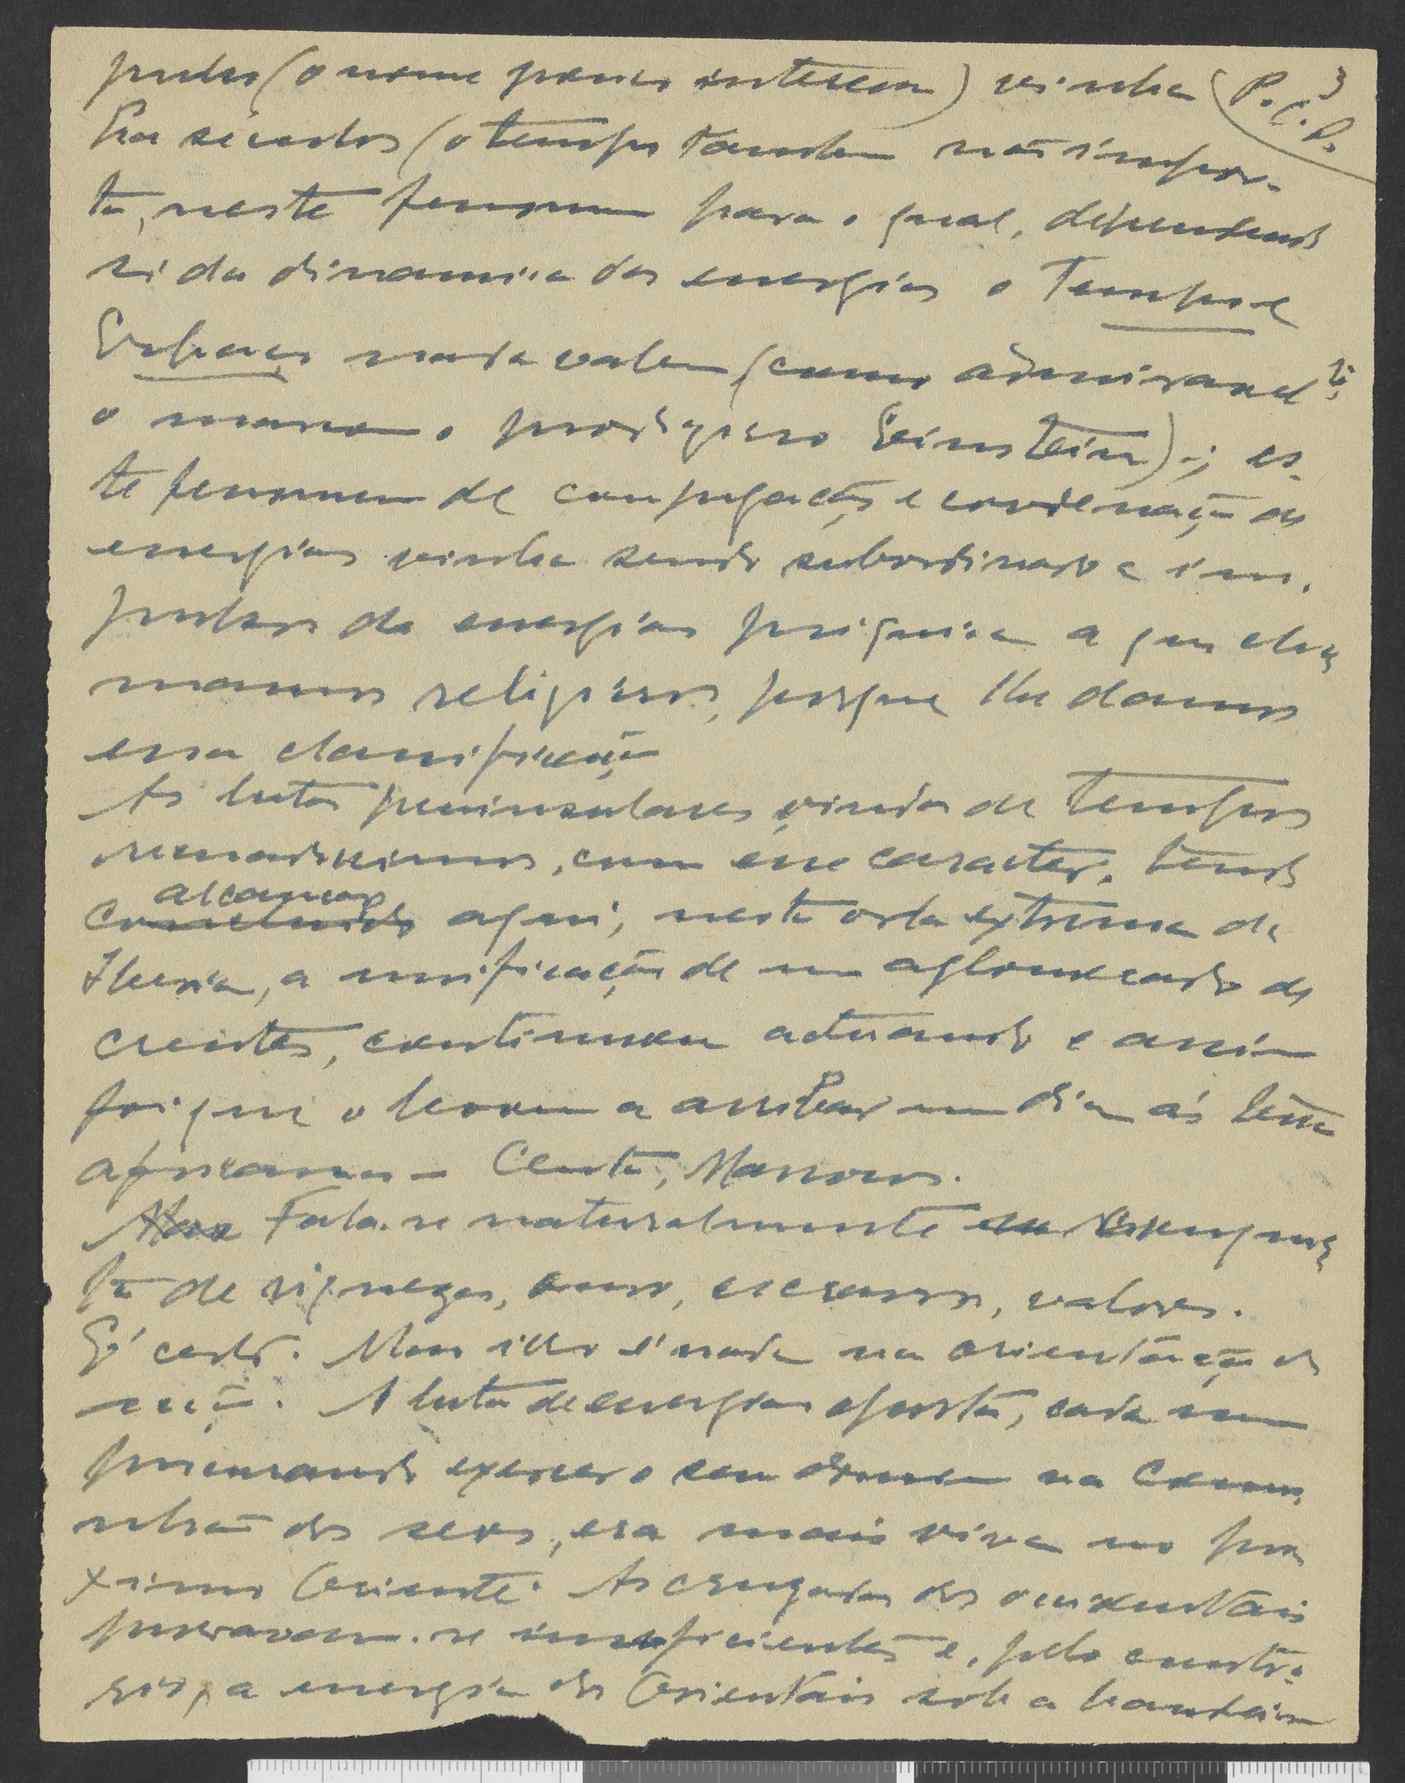 (o nome pouco interessa) vinha (P.C.P. 3
ha seculos (o tempo tambem não impor-
ta, neste fenomeno para o qual, dependendo
si da dinamica das energias o Tempo e
Espaço nada valem, (como admiravel
o prodigioso Einstein); es-
te fenomeno de conjugação e coordenação das
energias vinha sendo subordinado a im-
pulsos da energia psiquica a que cha-
mamos religioso, porque lhe damos
essa classificação
As lutas peninsulares, vindas de tempos
com esse caracter, tendo
alcançado
concluido aqui, nesta orla extrema da
Iberia, a unificação de um aglomerado de
crentes, continuou actuando e assim
foi que o levou a arribar um dia ás terras
africanas - Ceuta, Marrocos.
Fala-se naturalmente em conquis-
ta de riquezas, ouro, escravos, valores.
É certo. Mas isso é nada na orientação da
acção. A luta de energias opostas, cada uma
procurando exercer o seu dominio na
dos seres, era mais viva no pro-
ximo Oriente. As cruzadas dos ocidentais
provaram-se insuficientes e, pelo contra-
rio, a energia dos Orientais sob a bandeira